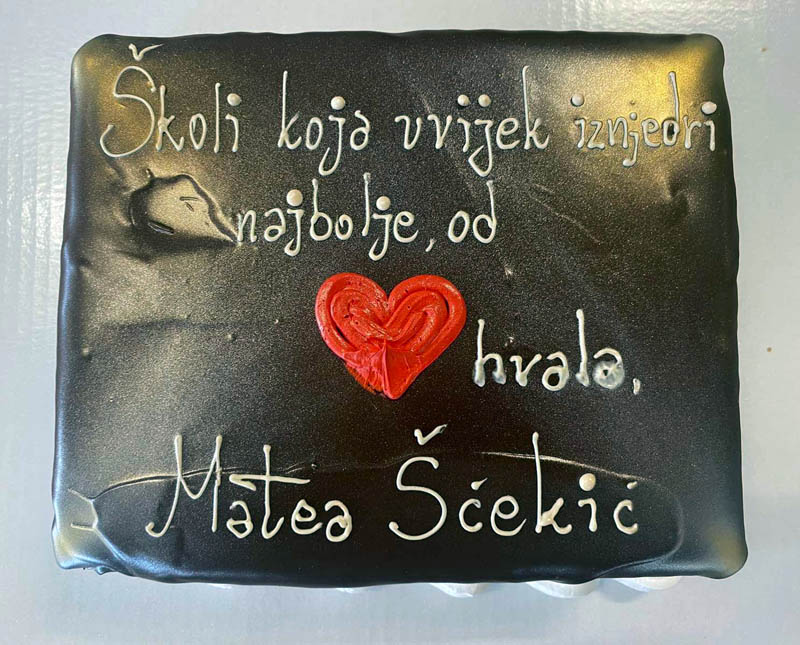 Školi koja vvijek iznjedri
najbolje, od
hvala,
Matea Šćekić